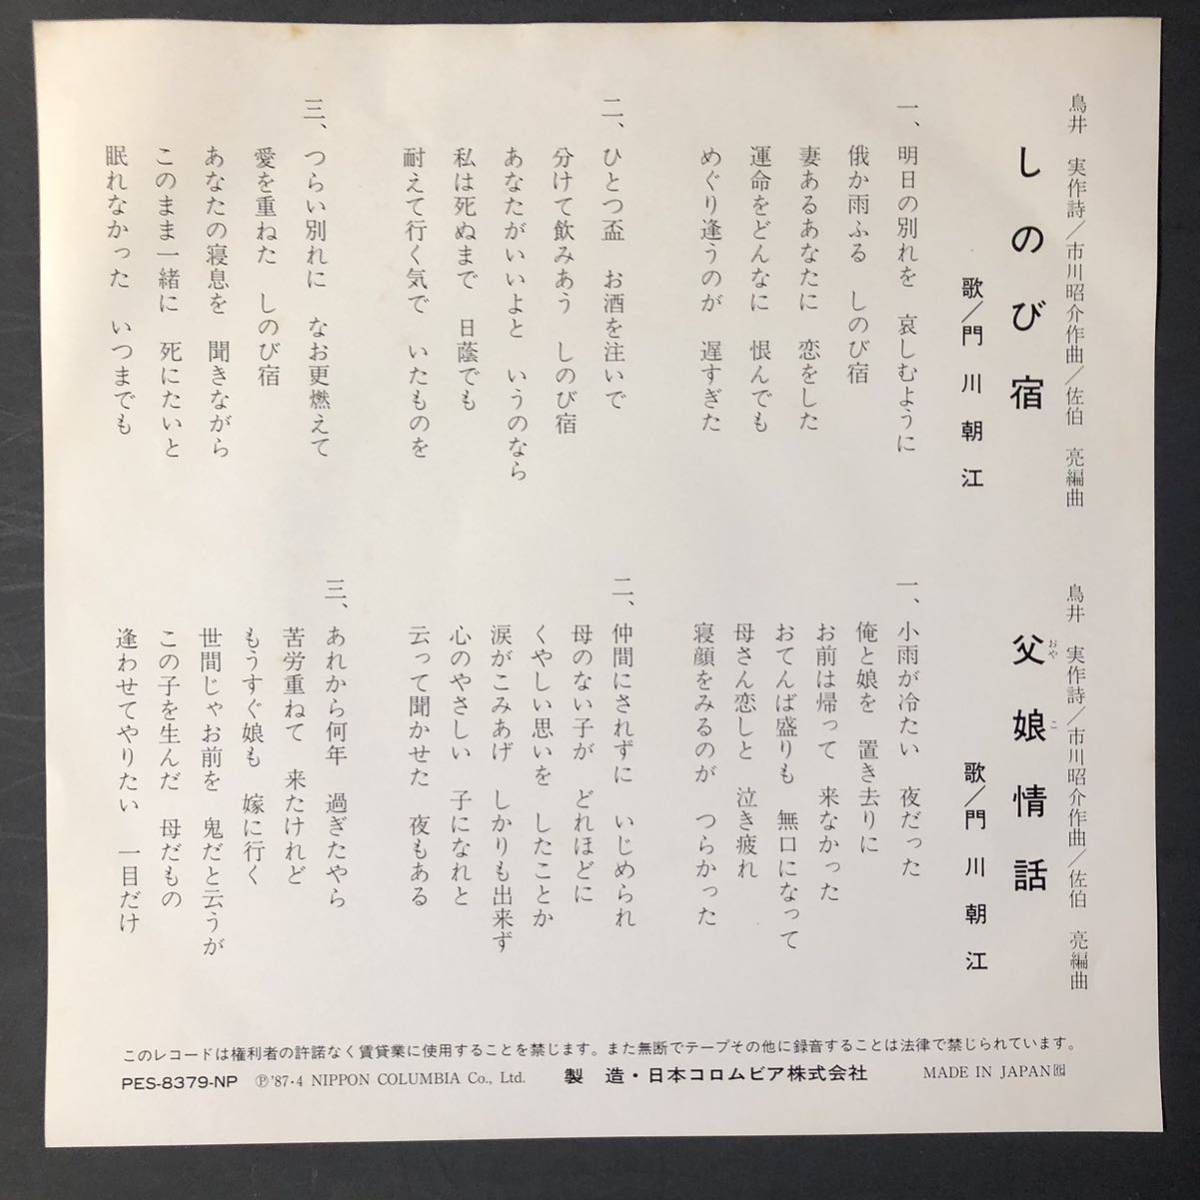 鳥井　実作詩／市川昭介作曲／佐伯　亮編曲
しのび宿
歌／門川朝江
一、明日の別れを　哀しむように
俄か雨ふる　しのび宿
妻あるあなたに　恋をした
運命をどんなに　恨んでも
めぐり逢うのが　遅すぎた
二、ひとつ盃　お酒を注いで
分けて飲みあう　しのび宿
あなたがいいよと　いうのなら
私は死ぬまで　日蔭でも
耐えて行く気で　いたものを
三、つらい別れに　なお更燃えて
愛を重ねた　しのび宿
あなたの寝息を　聞きながら
このまま一緒に　死にたいと
眠れなかった　いつまでも
鳥井　実作詩／市川昭介作曲／佐伯　亮編曲
父娘情話
おや　こ
歌／門川朝江
一、小雨が冷たい　夜だった
俺と娘を　置き去りに
お前は帰って　来なかった
おてんば盛りも　無口になって
母さん恋しと　泣き疲れ
寝顔をみるのが　つらかった
二、仲間にされずに　いじめられ
母のない子が　どれほどに
くやしい思いを　したことか
涙がこみあげ　しかりも出来ず
心のやさしい　子になれと
云って聞かせた　夜もある
三、あれから何年　過ぎたやら
苦労重ねて　来たけれど
もうすぐ娘も　嫁に行く
世間じゃお前を　鬼だと云うが
この子を生んだ　母だもの
逢わせてやりたい　一目だけ
このレコードは権利者の許諾なく賃貸業に使用することを禁じます。また無断でテープその他に録音することは法律で禁じられています。
PES-8379-NP　Ⓟ'87・4 NIPPON COLUMBIA Co., Ltd.　製　造・日本コロムビア株式会社　MADE IN JAPAN